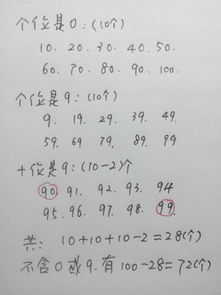 个位是0:(10个)
10. 20. 30. 40. 50.
60. 70. 80. 90. 100.
个位是9:(10个)
9. 19. 29. 39. 49.
59. 69 79. 89. 99
十位是9:(10-2)个
90. 91. 92. 93. 94
95. 96. 97. 98. 99.
共: 10+10+10-2=28(个)
不含0或9.有100-28=72(个)